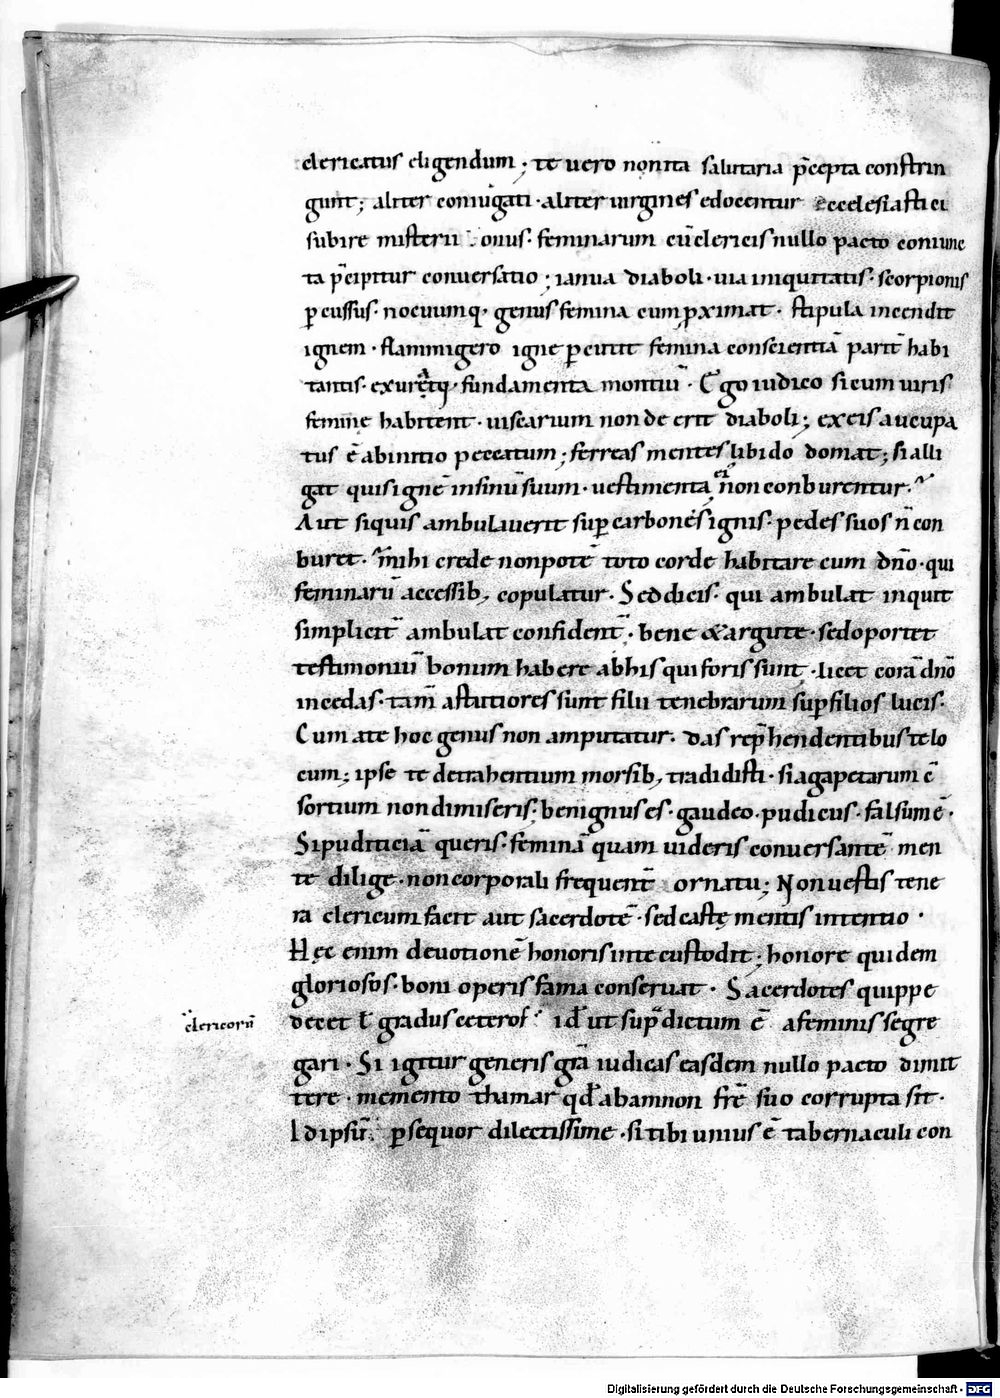 clericatus eligendum; te uero non ita salutaria p̄cepta constrin
gunt; aliter coniugati · aliter uirgines edocentur ecclesiastici
subire misterii onus · feminarum cū clericis nullo pacto coniunc
ta p̄cipitur conuersatio; ianua diaboli · uia iniquitatis · scorpionis
ꝑcussus · nocuumq, genus femina cum ꝓximat · stipula incendit
ignem · flammigero igne ꝑcutit femina conscientiā parit̄ habi
tantis · exur&q; fundamenta montiū · Ergo iudico si cum uiris
femine habitent · uiscarium non de erit diaboli; ex eis aucupa
tus ē ab initio peccatum; ferreas mentes libido domat; si alli
gat quis ignē in sinū suum · uestimenta ei non conburentur ·
Aut siquis ambulauerit suꝑ carbones ignis · pedes suos n̄ con
buret · mihi crede non potē toto corde habitare cum dn̄o · qui
feminarū accessib; copulatur · Sed dicis · qui ambulat inquit
simplicit̄ ambulat confident̄ · bene & argute · sed oportet
testimoniū bonum habere ab his qui foris sunt · licet corā dn̄o
incedas · tam̄ astutiores sunt filii tenebrarum suꝑ filios lucis ·
Cum a te hoc genus non amputatur · das rep̄hendentibus te lo
cum; ipse te detrahentium morsib; tradidisti · si agapetarum c̄
sortium non dimiseris · benignus es · gaudeo · pudicus · falsum ē ·
Si pudiciciā queris · feminā quam uideris conuersantē men
te dilige · non corporali frequent̄ ornatu; Non uestis tene
ra clericum facit aut sacerdotē · sed castę mentis intentio ·
Hęc enim deuotionē honoris in te custodit; honore quidem
gloriosos · boni operis fama conseruat · Sacerdotes quippe
clericorū
decet ł gradus ceteros · id ē ut sup̄dictum ē a feminis segre
gari · Si igitur generis gr̄a iudicas easdem nullo pacto dimit
tere · memento thamar qđ ab amnon fr̄e suo corrupta sit ·
Id ipsū ꝑsequor dilectissime · si tibi unius ē tabernaculi con